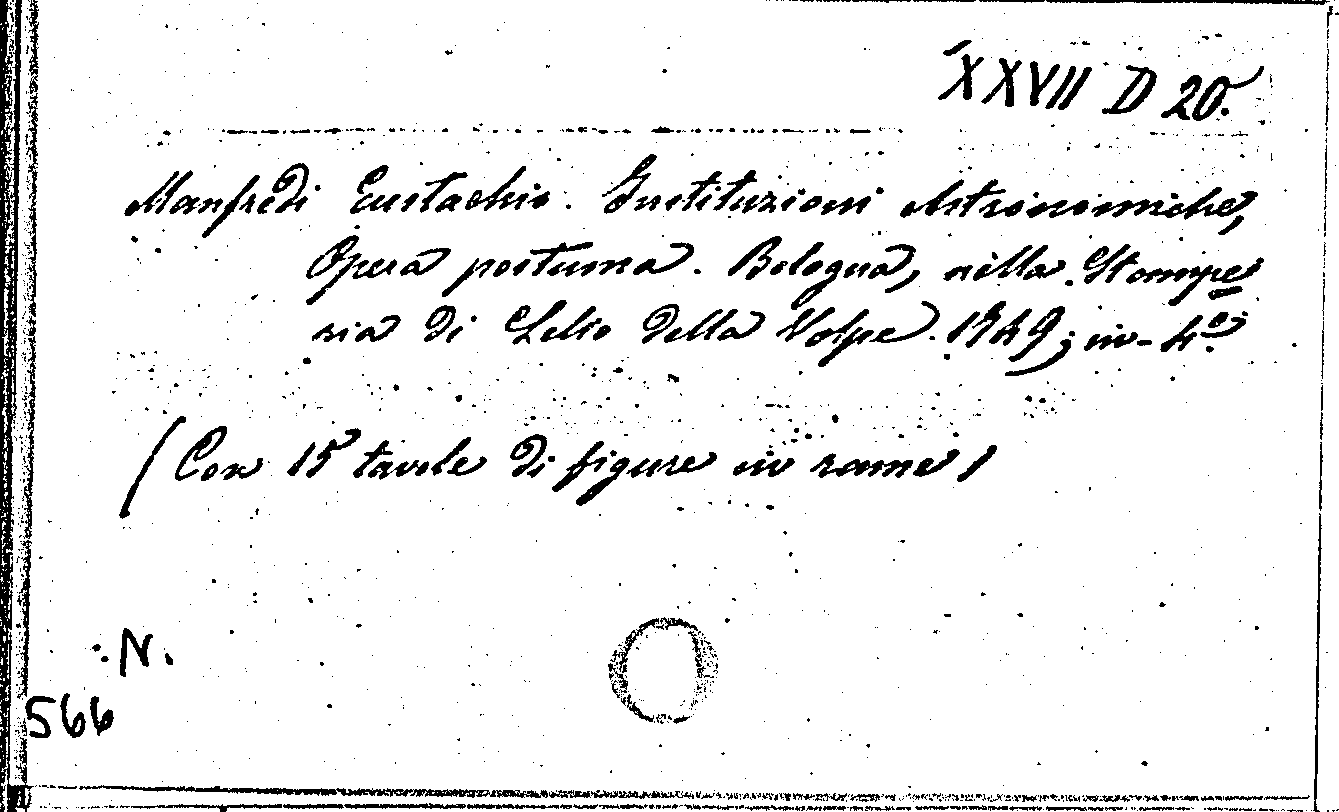 XXVII D 20.
Manfredi Eustachio. Instituzioni Astronomiche,
Opera postuma. Bologna, nella Stampe
ria di Lelio della Volpe. 1749; in-4º.
(Con 15 tavole di figure in rame)
N.
566